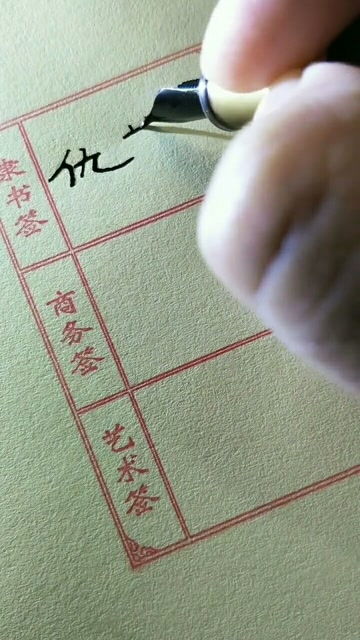 隶书签
仇
商务签
艺术签